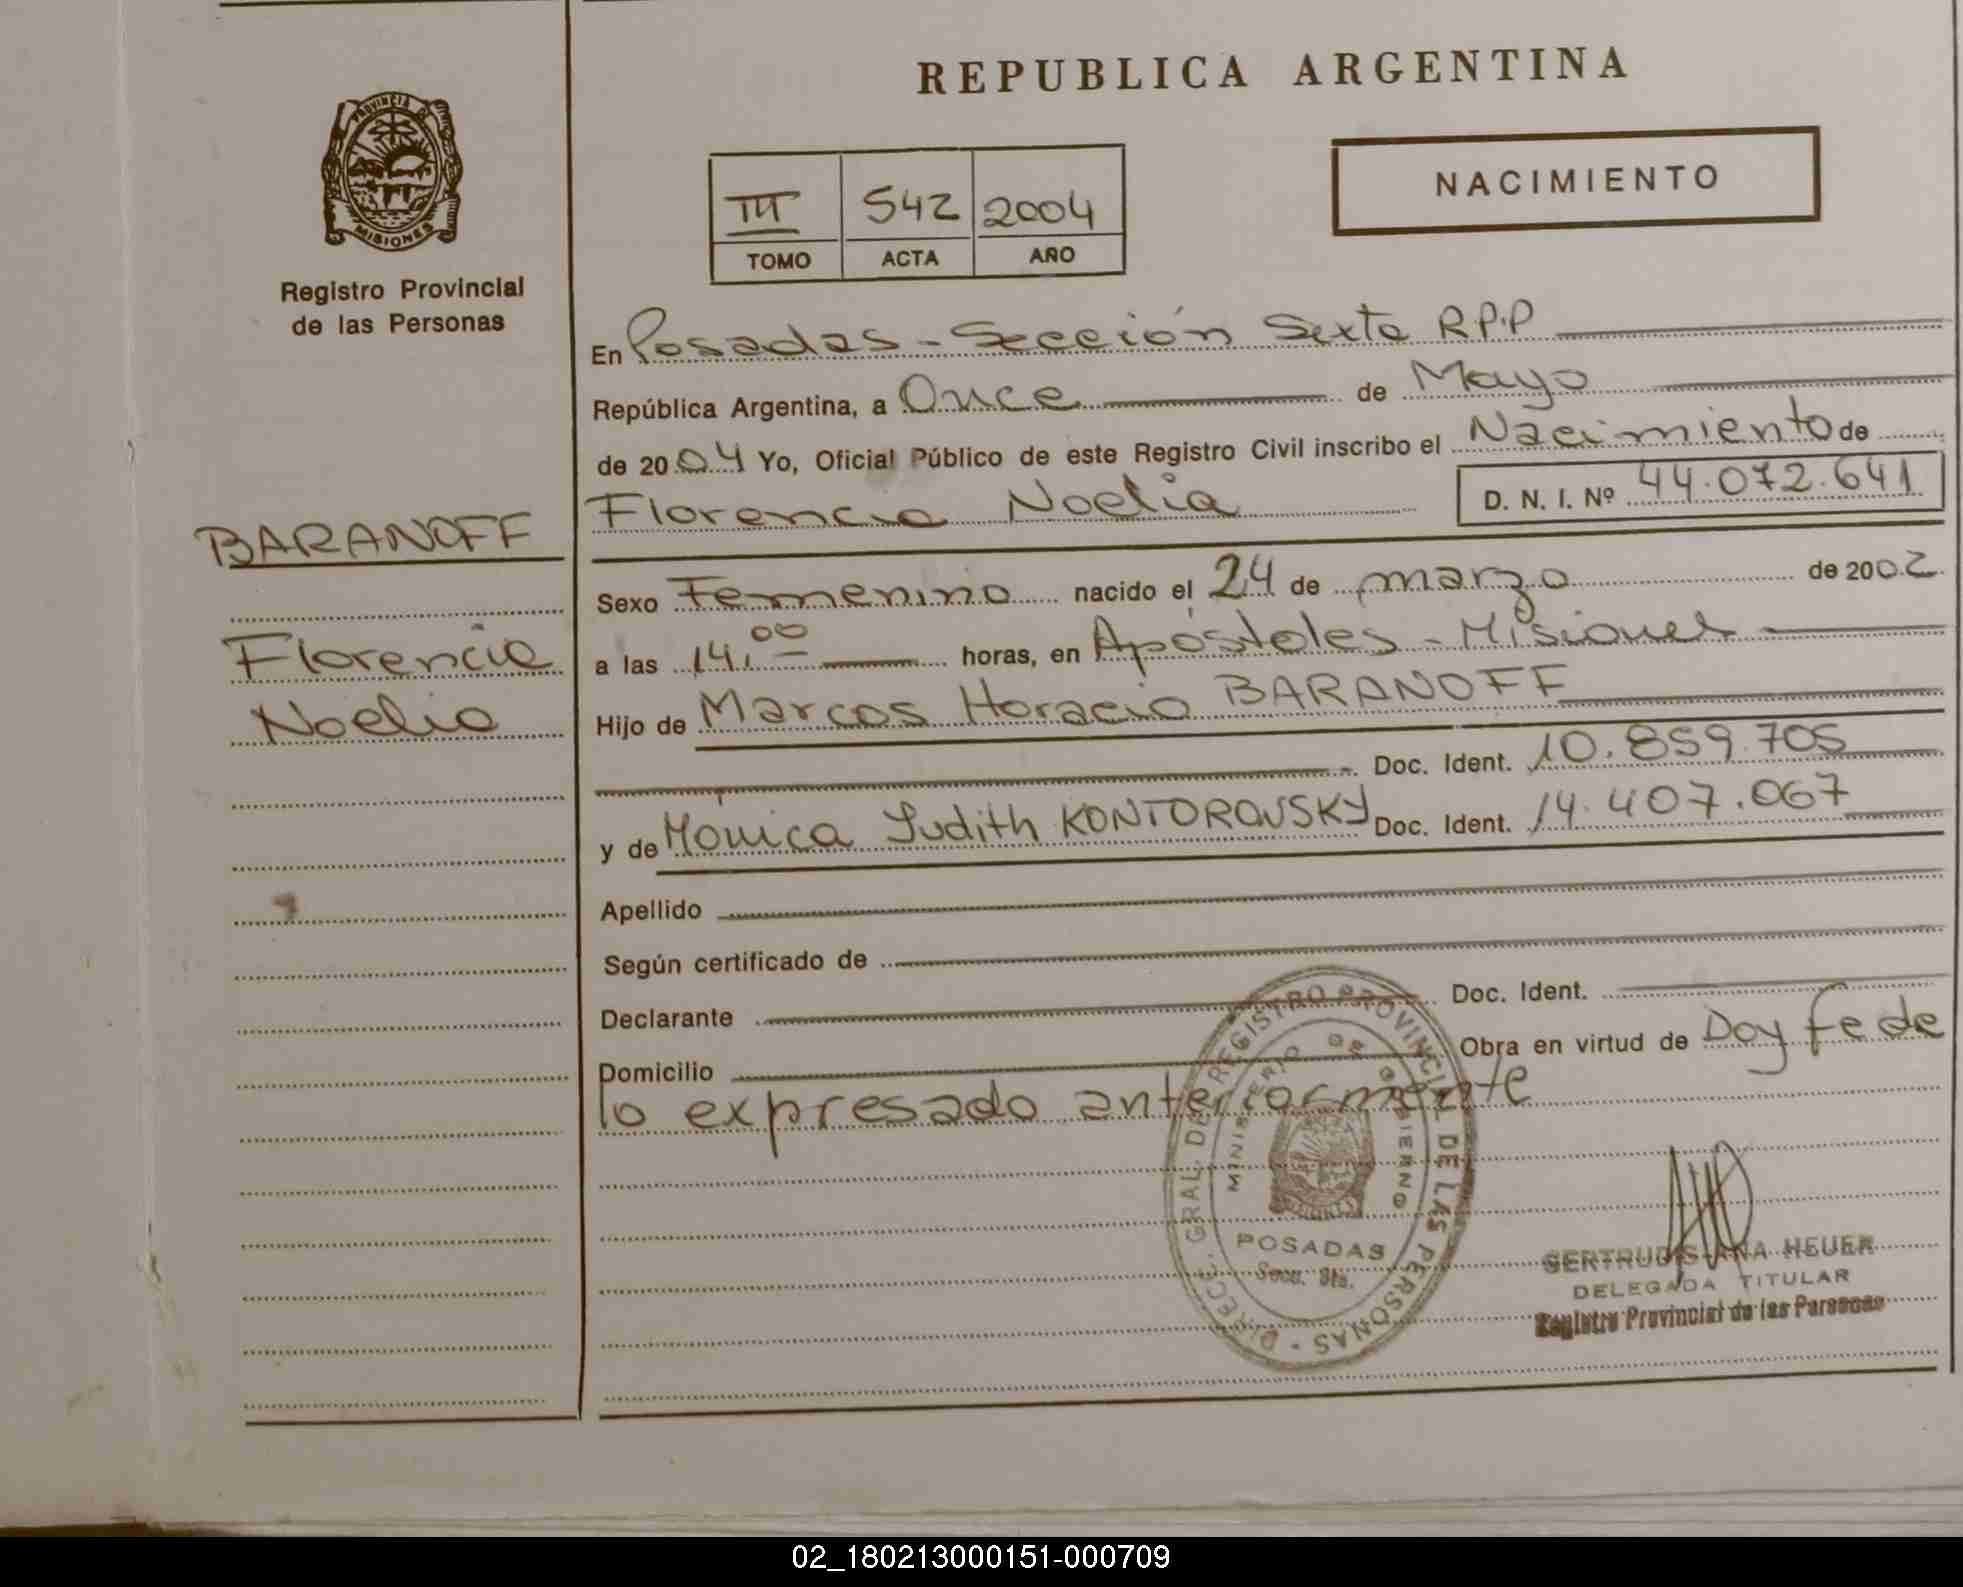 REPUBLICA ARGENTINA
PROVINCIA DE
MISIONES
Registro Provincial
de las Personas
NACIMIENTO
III 542 2004
TOMO ACTA AÑO
En Posadas - Sección Sexta R.P.P
República Argentina, a Once de Mayo
de 2004 Yo, Oficial Público de este Registro Civil inscribo el Nacimiento de
Florencia Noelia D. N. I. Nº 44.072.641
BARANOFF
Florencia
Noelia
Sexo Femenino nacido el 24 de marzo de 2002
a las 14,00 horas, en Apóstoles - Misiones
Hijo de Marcos Horacio BARANOFF
Doc. Ident. 10.859.705
y de Mónica Judith KONTOROVSKY Doc. Ident. 14.407.067
Apellido
Según certificado de
Declarante Doc. Ident.
Domicilio Obra en virtud de Doy fe de
lo expresado anteriormente
DIRECC. GRAL. DE REGISTRO PROVINCIAL DE LAS PERSONAS
MINISTERIO DE GOBIERNO
POSADAS
Secc. 6ta.
GERTRUDIS ANA HEUER
DELEGADA TITULAR
Registro Provincial de las Personas
02_180213000151-000709